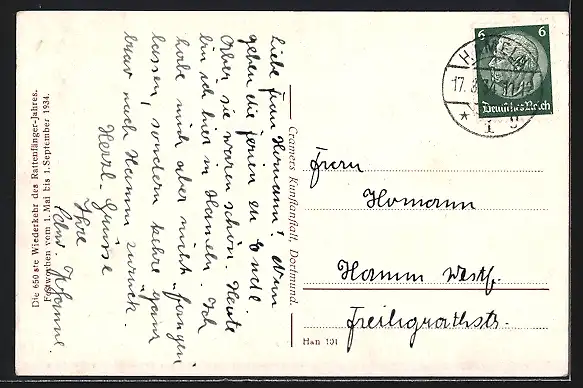 Liebe Frau Homann! Nun
gehen die Ferien zu Ende.
Aber sie waren schön. Heute
bin ich hier in Hameln. Ich
habe mich aber nicht „fangen
lassen, sondern kehre „ganz
brav nach Hamm zurück.
Herzl. Grüsse
Ihre
Schw. Johanne.
Die 650 ste Wiederkehr des Rattenfänger-Jahres.
Festwochen vom 1. Mai bis 1. September 1934.
Cramers Kunstanstalt, Dortmund.
Han 101
6 6
Deutsches Reich
HAMELN
17. 8. 34. 11-12
* 1 g
Frau
Homann
Hamm Westf.
Freiligrathstr.